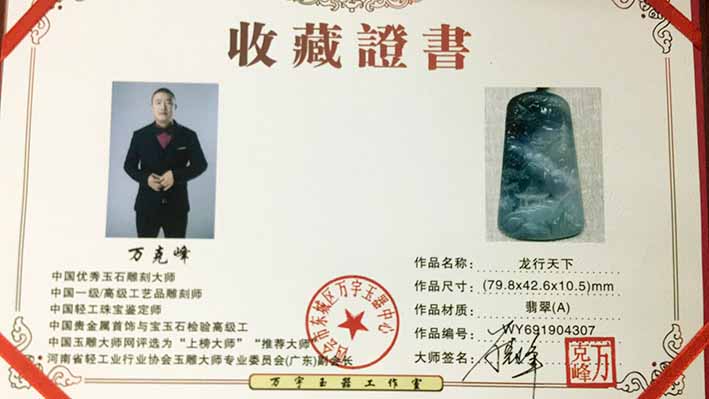 收藏證書
万克峰
中国优秀玉石雕刻大师
中国一级/高级工艺品雕刻师
中国轻工珠宝鉴定师
中国贵金属首饰与宝玉石检验高级工
中国玉雕大师网评选为“上榜大师”“推荐大师”
河南省轻工业行业协会玉雕大师专业委员会(广东)副会长
作品名称: 龙行天下
作品尺寸: (79.8x42.6x10.5)mm
作品材质: 翡翠(A)
作品编号: WY691904307
大师签名:
万克峰
四会市东城区万宇玉器中心
万宇玉器工作室